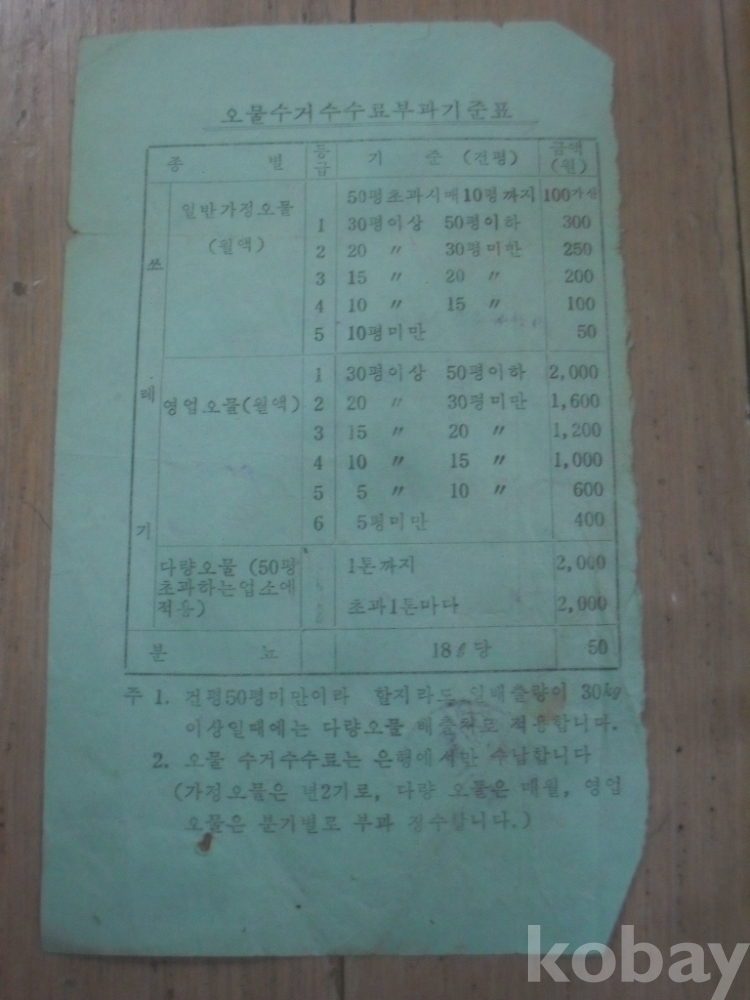 오물수거수수료부과기준표
종 별 등급 기 준 (건평) 금액(원)
쓰레기
일반가정오물 (월액)
50평초과시매10평까지 100가산
1 30평이상 50평이하 300
2 20 〃 30평미만 250
3 15 〃 20 〃 200
4 10 〃 15 〃 100
5 10평미만 50
영업오물(월액)
1 30평이상 50평이하 2,000
2 20 〃 30평미만 1,600
3 15 〃 20 〃 1,200
4 10 〃 15 〃 1,000
5 5 〃 10 〃 600
6 5평미만 400
다량오물 (50평초과하는업소에적용)
1톤까지 2,000
초과1톤마다 2,000
분 뇨 18ℓ당 50
주 1. 건평50평미만이라 할지라도 일배출량이 30kg
이상일때에는 다량오물 배출처로 적용합니다.
2. 오물 수거수수료는 은행에서만 수납합니다
(가정오물은 년2기로, 다량 오물은 매월, 영업
오물은 분기별로 부과 징수합니다.)
kobay